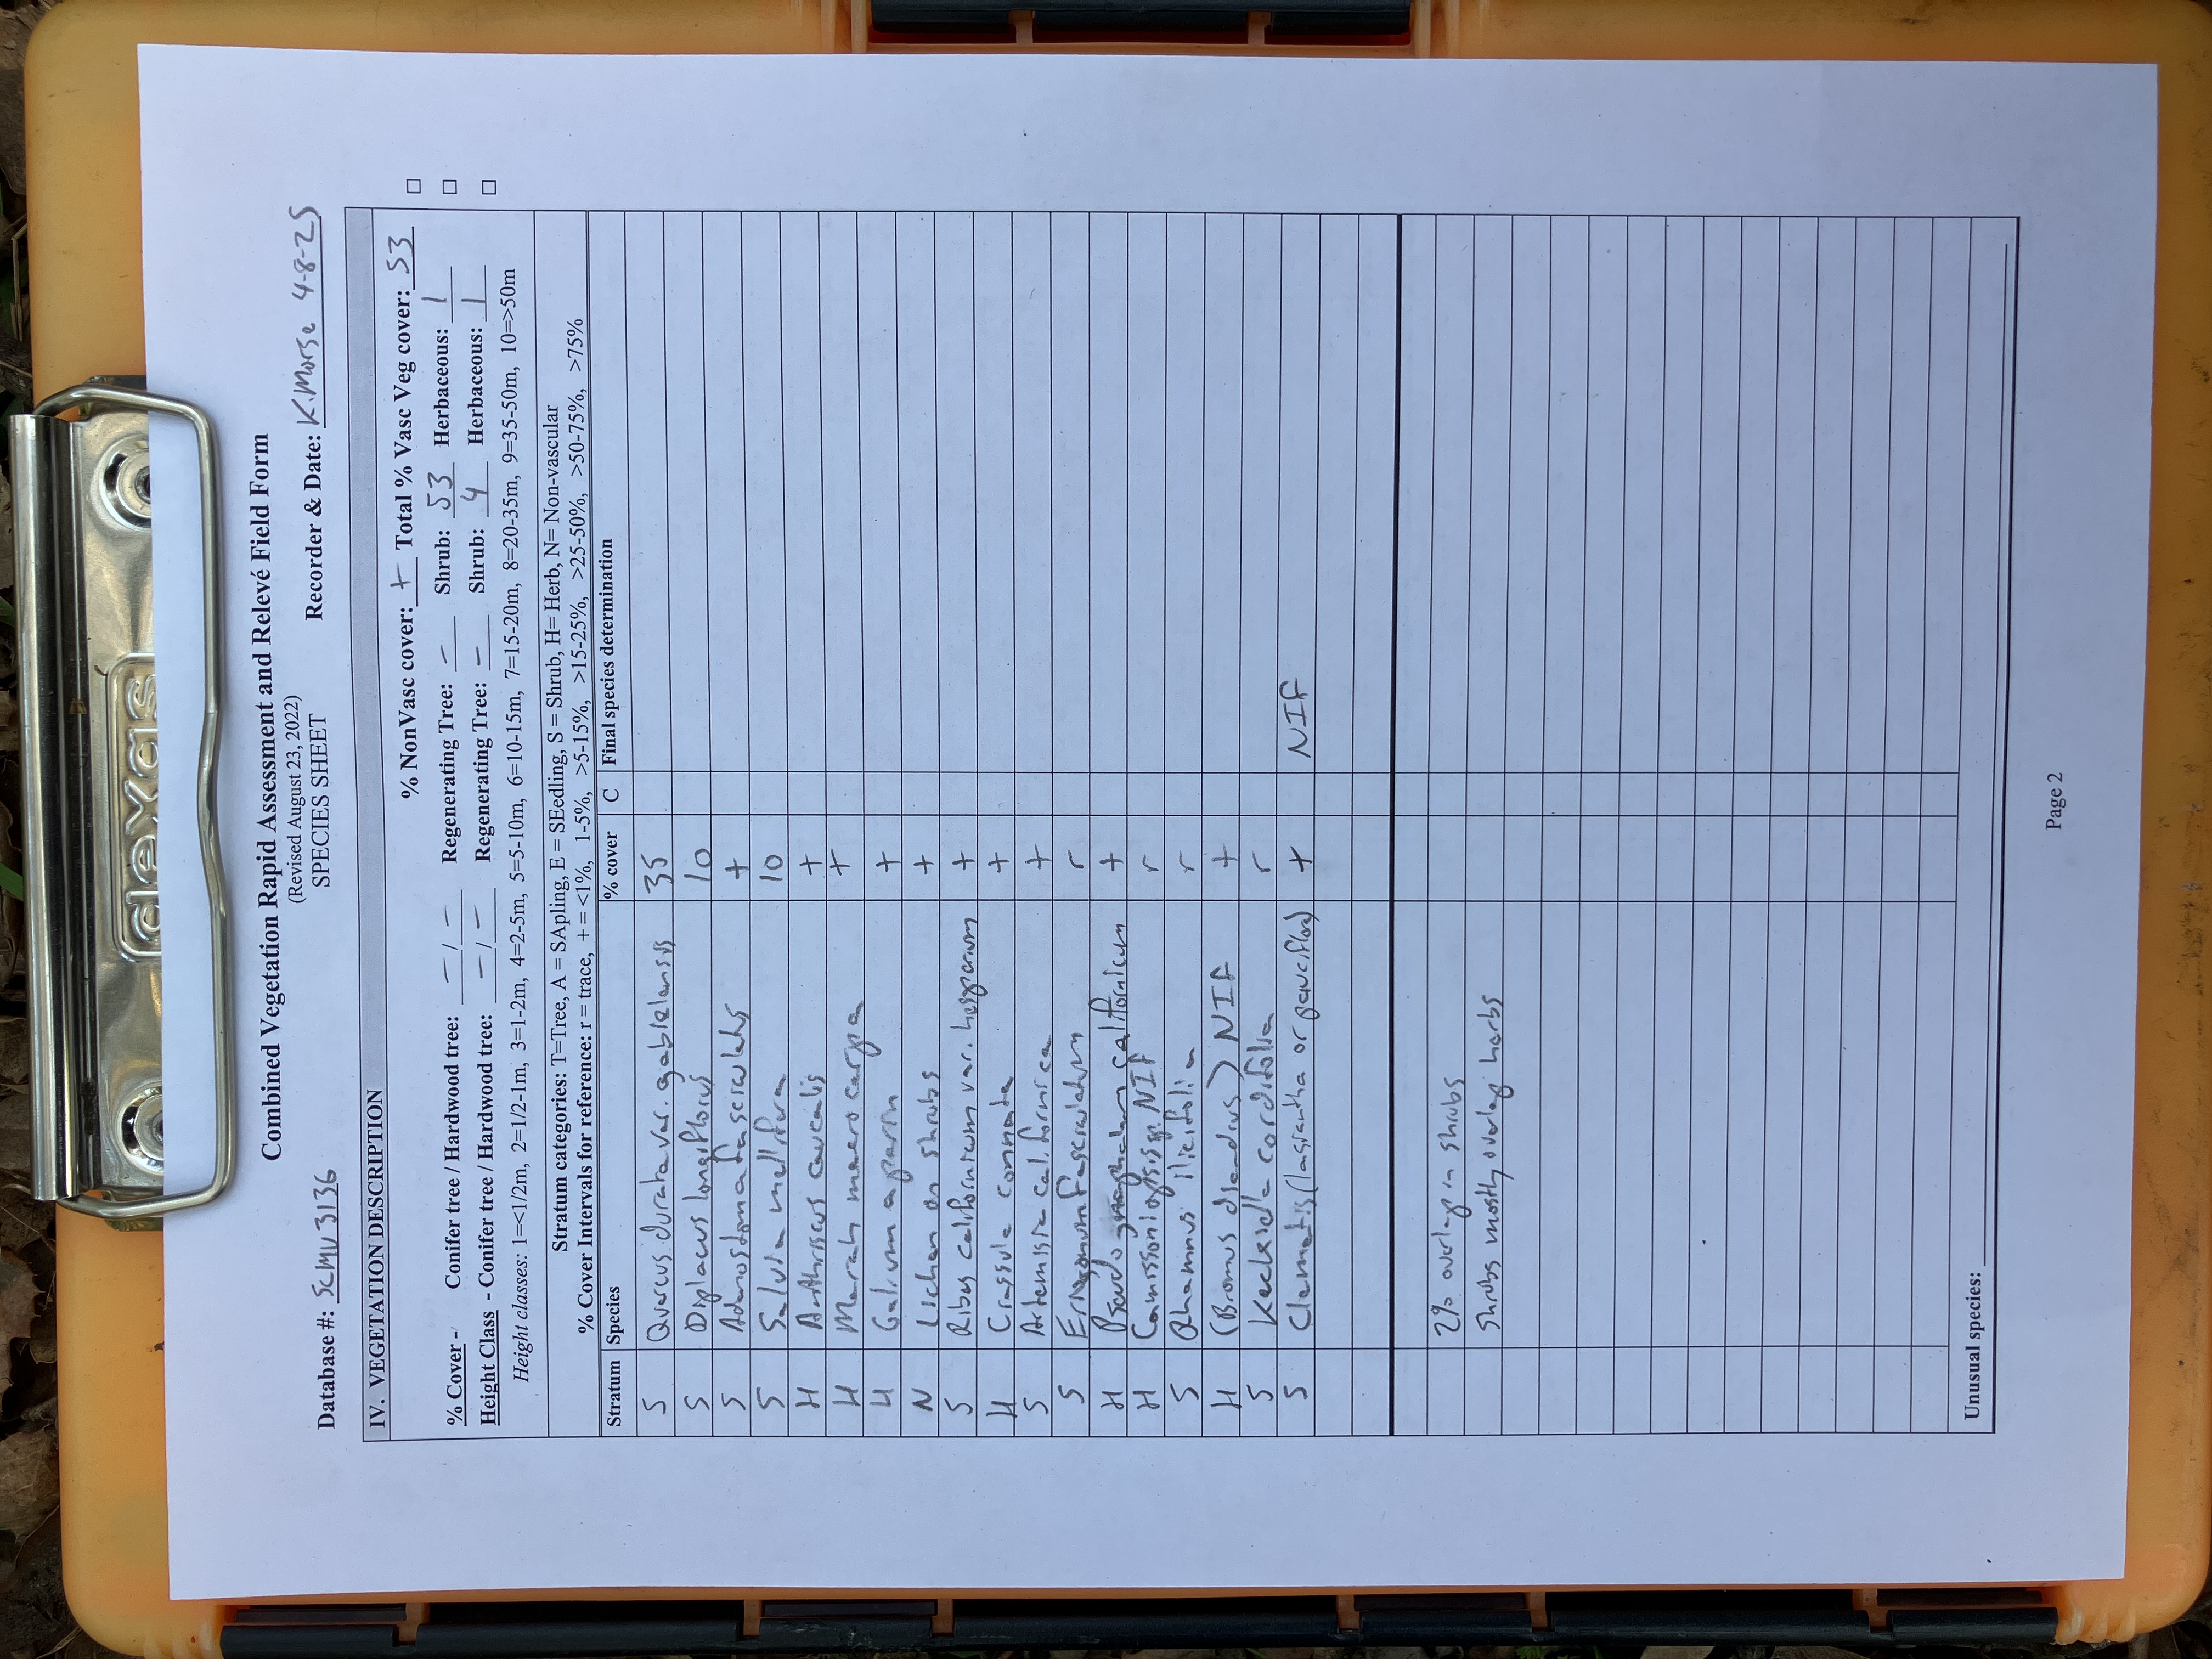 dexas
Combined Vegetation Rapid Assessment and Relevé Field Form
(Revised August 23, 2022)
SPECIES SHEET
Database #: SCMU 3136 Recorder & Date: K.Morse 4-8-25
IV. VEGETATION DESCRIPTION
% NonVasc cover: + Total % Vasc Veg cover: 53 □
% Cover - Conifer tree / Hardwood tree: - / - Regenerating Tree: - Shrub: 53 Herbaceous: 1 □
Height Class - Conifer tree / Hardwood tree: - / - Regenerating Tree: - Shrub: 4 Herbaceous: 1 □
Height classes: 1=<1/2m, 2=1/2-1m, 3=1-2m, 4=2-5m, 5=5-10m, 6=10-15m, 7=15-20m, 8=20-35m, 9=35-50m, 10=>50m
Stratum categories: T=Tree, A = SApling, E = SEedling, S = Shrub, H= Herb, N= Non-vascular
% Cover Intervals for reference: r = trace, + = <1%, 1-5%, >5-15%, >15-25%, >25-50%, >50-75%, >75%
Stratum Species % cover C Final species determination
S Quercus durata var. gabrielensis 35
S Diplacus longiflorus 10
S Adenostoma fasciculatum +
S Salvia mellifera 10
H Anthriscus caucalis +
H Marah macrocarpa +
H Galium aparine +
N Lichen on shrubs +
S Ribes californicum var. hesperium +
H Crassula connata +
S Artemisia californica +
S Eriogonum fasciculatum r
H Pseudognaphalium californicum +
H Camissoniopsis sp. NIF r
S Rhamnus ilicifolia r
H (Bromus diandrus) NIF +
S Keckiella cordifolia r
S Clematis (lasiantha or pauciflora) + NIF
2% overlap in shrubs
Shrubs mostly overlap herbs
Unusual species:
Page 2